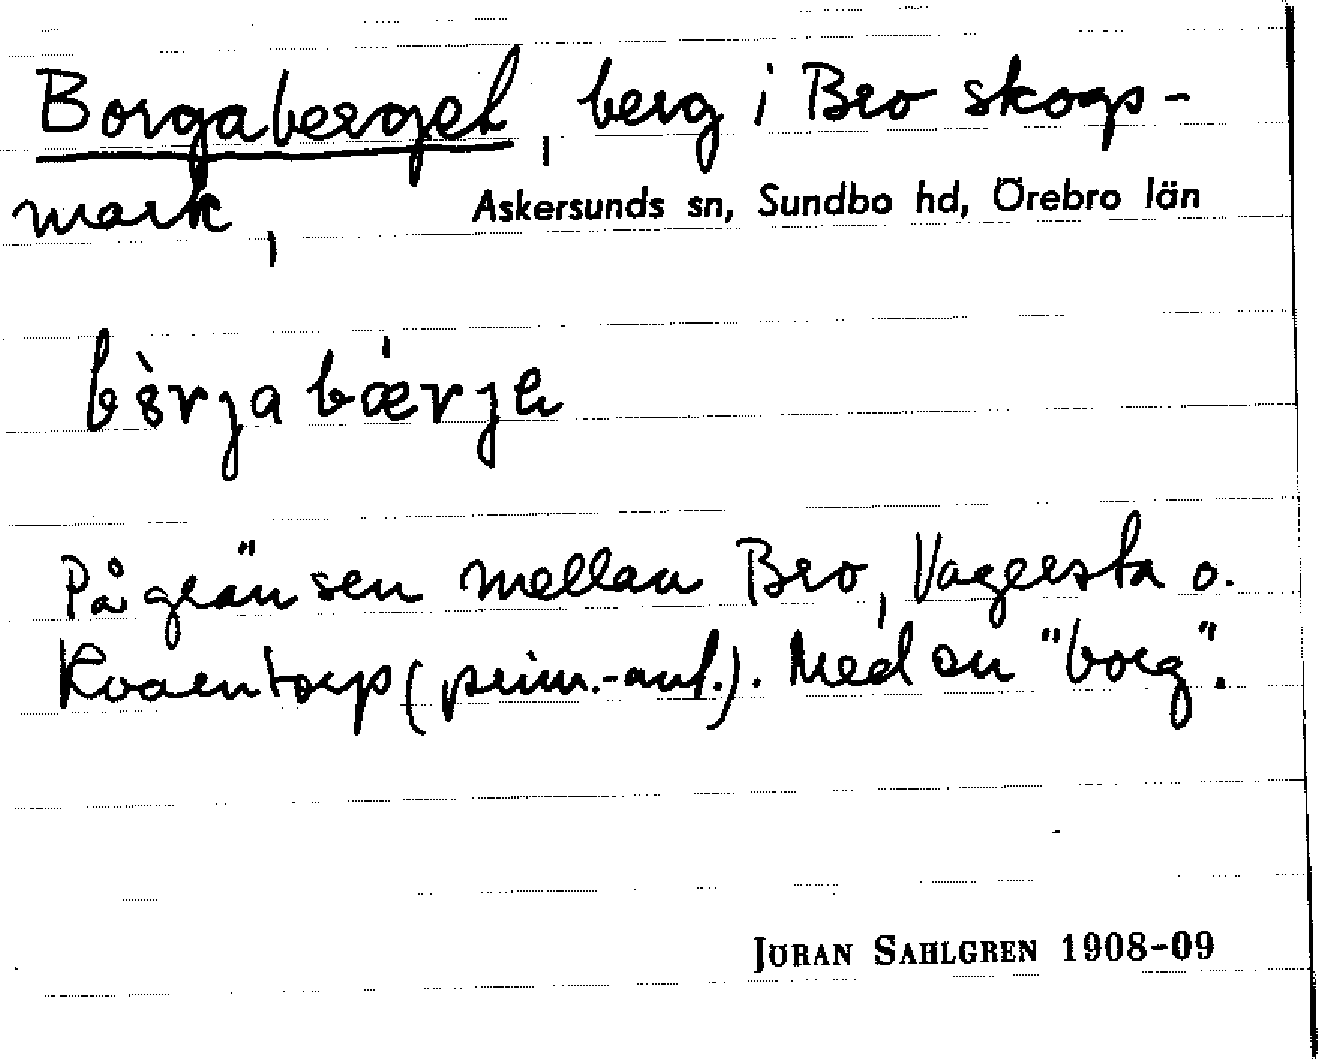 Borgaberget, berg i Bro skogs-
mark, Askersunds sn, Sundbo hd, Örebro län
På gränsen mellan Bro, Vaggersta o.
(prim.-auf.). Med en "borg".
JÖRAN SAHLGREN 1908-09